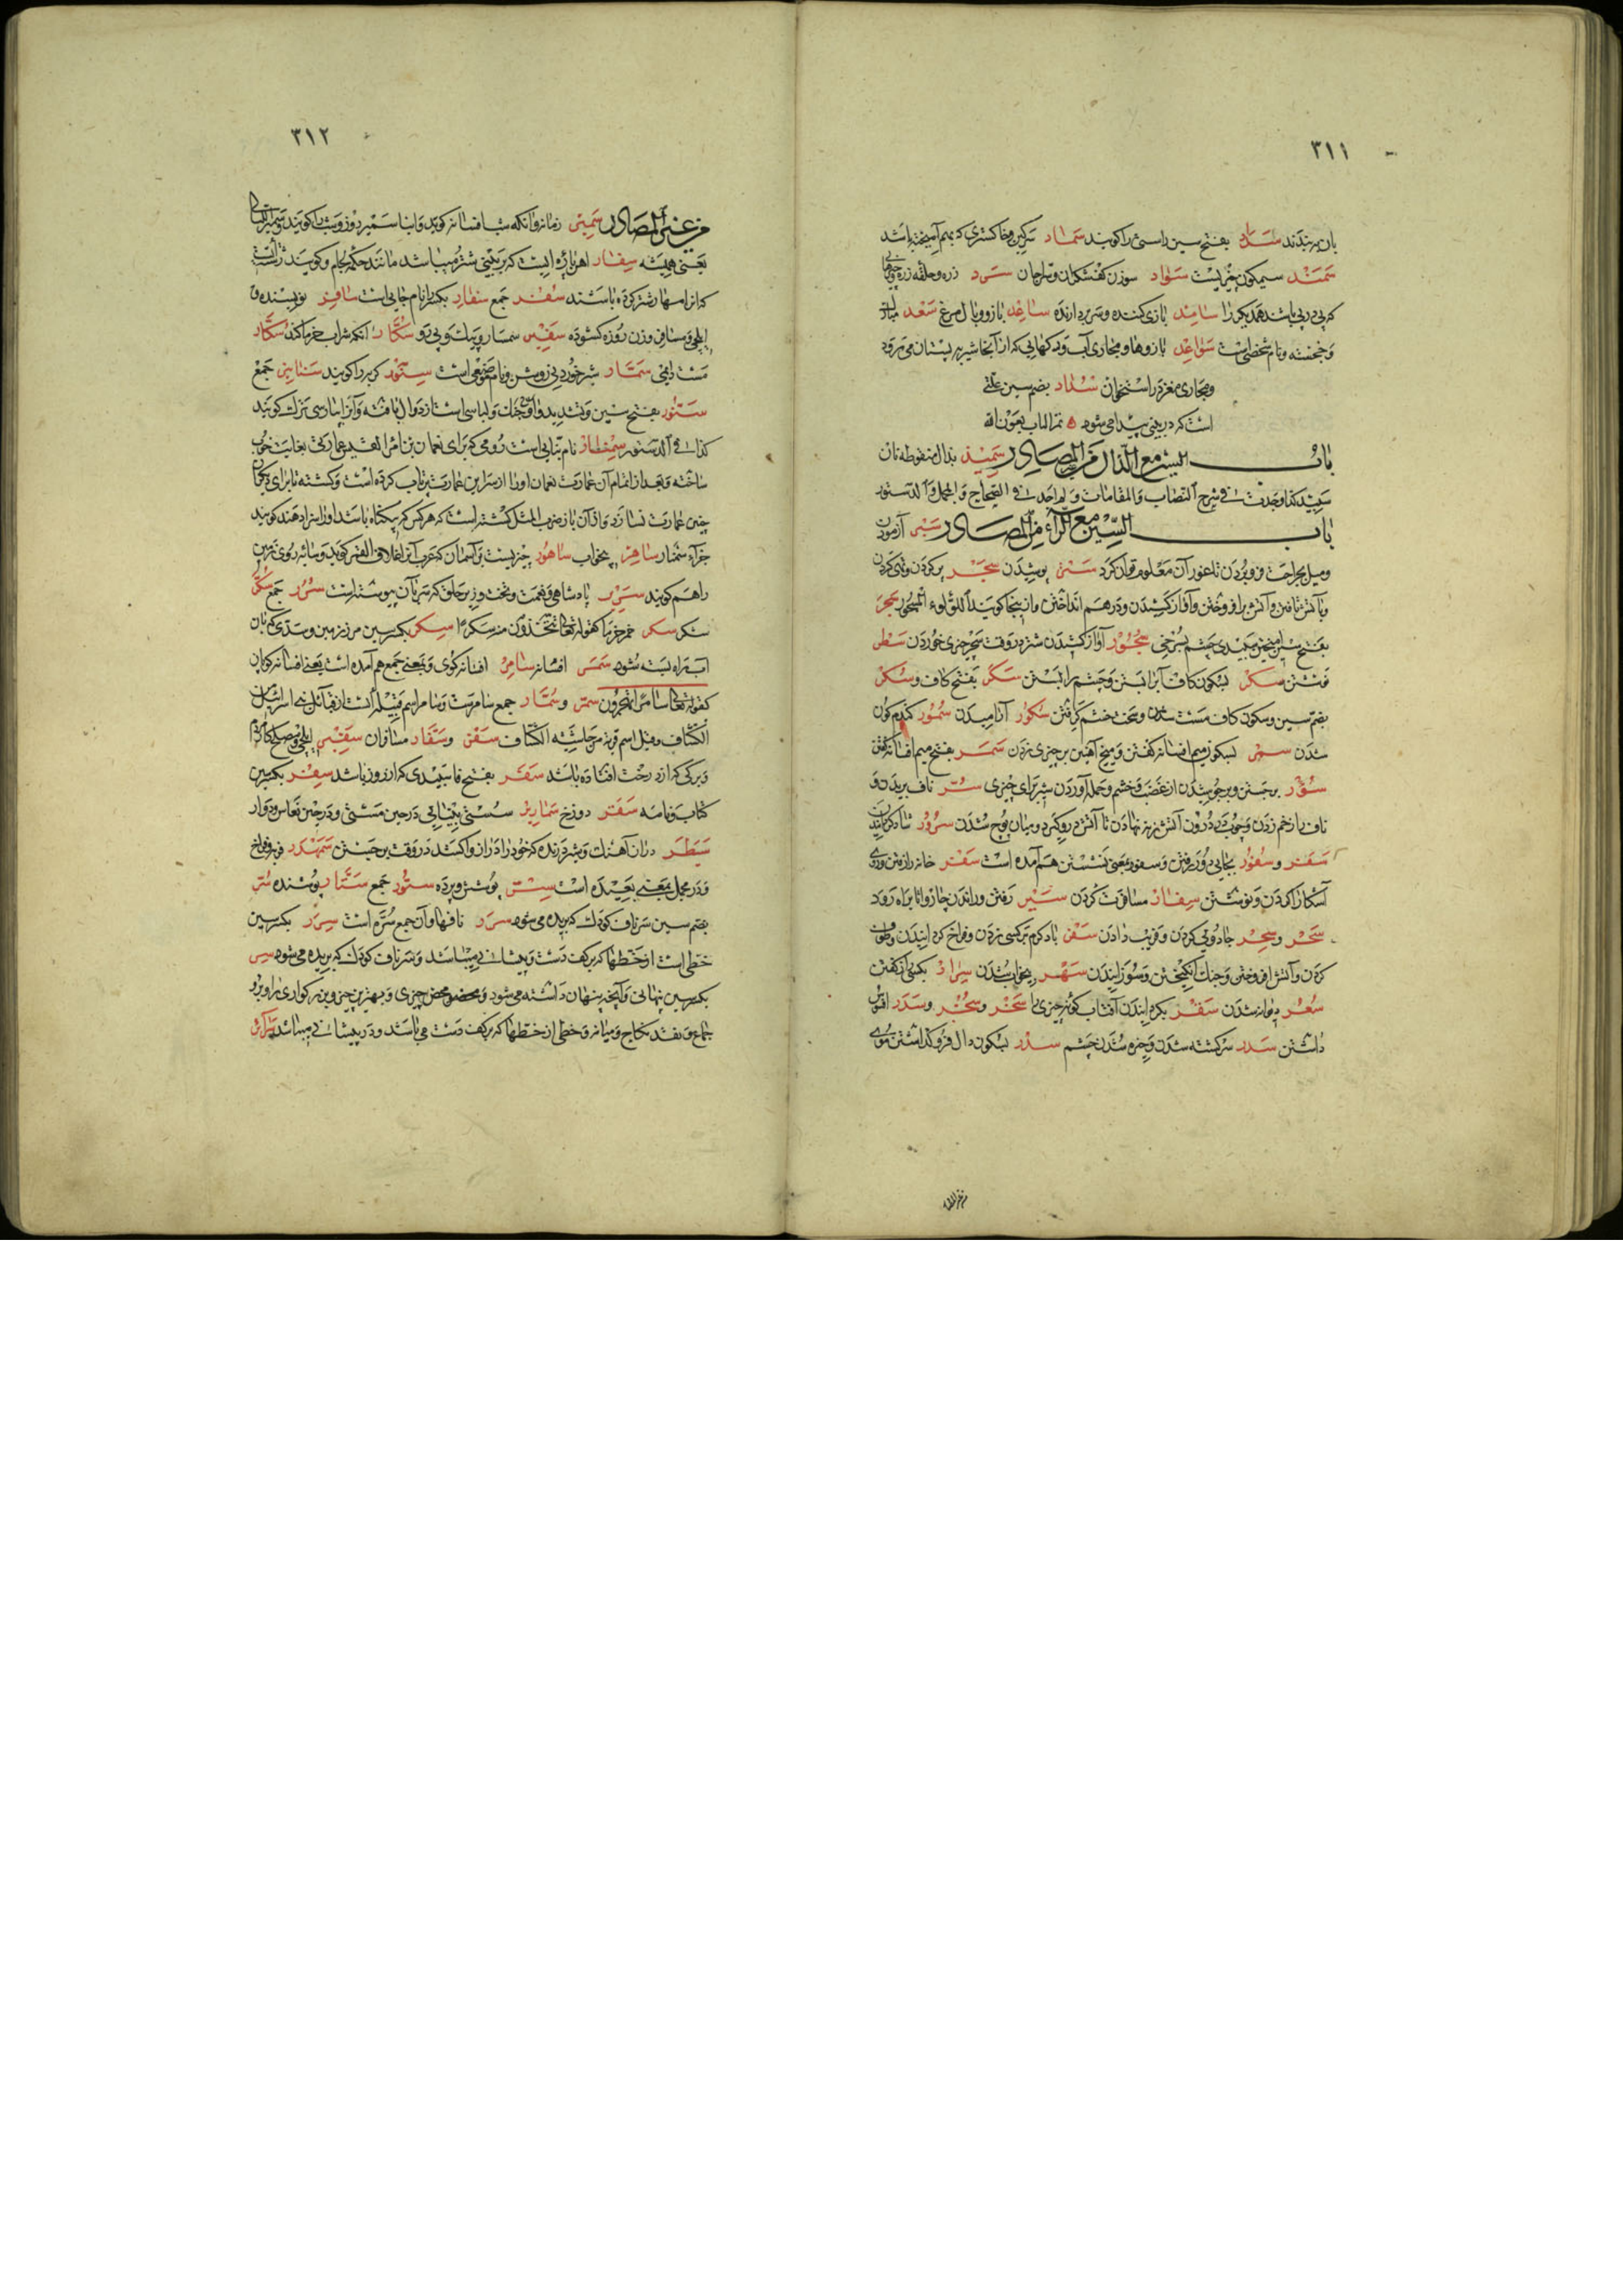 ٣١١
بان بهربندند سداد بفتح سین راستی را کویند سماد سرکین وخاکستری که بهم آمیخته باشد
سمند سیمکون چیزیست سواد سوزن کفشکران وسراجان سرد زره وحلقه زره
که پی درپی باشد همدیکر را سامد بازی کننده وسر بردارنده ساعد بازو وبال مرغ سعد مبارک
وخجسته ونام شخصی است سواعد بازوها ومجاری آب ورکهایی که از آنجا شیر به پستان می رود
ومجاری مغز در استخوان سداد بضم سین علتی
است که در بینی پیدا می شود تم الباب بعون الله
باب السین مع الذال من غیر المصادر سمیذ بذال منقوطه نان
سپید کذا وجدت فی شرح النصاب والمقامات ولم اجد فی الصحاح والمجمل والدستور
باب السین مع الراء من المصادر سبر آزمودن
ومیل بجراحت فرو بردن تا غور آن معلوم توان کرد ستر پوشیدن سجر پر کردن وتهی کردن
بفتح سین آمیختن سپیدی چشم بسرخی سجور آواز کشیدن شتر در وقت چیزی خوردن سطر
نبشتن سکر بسکون کاف آب را بستن وچشم را بستن سکر بفتح کاف وسکر
بضم سین وسکون کاف مست شدن وسخت خشم گرفتن سکور آرامیدن سمور کندم کون
شدن سمر بسکون میم افسانه کفتن ومیخ آهنین بر چیزی زدن سمر بفتح میم افسانه کفتن
سؤر برجستن وبرجوشیدن از غضب وخشم وحمله آوردن برای چیزی سر ناف بریدن و
ناف را زخم زدن سرور شاد کردانیدن
سفر وسفور بجایی دور رفتن وسفور بمعنی نشستن هم آمده است سفر خانه رفتن و روی
آشکارا کردن ونوشتن سفار مسافرت کردن سیر رفتن وراندن چاروا تا براه رود
سحر وسحر جادویی کردن وفریب دادن
کردن وآتش افروختن وجنک انکیختن وسوزانیدن سهر بیخواب شدن سرار بکسی راز کفتن
سعر دیوانه شدن سقر بکرم ایندن آفتاب کونه چیزی را سخر وسخر وسدر افسوس
داشتن سدر سرکشته شدن وخیره شدن چشم سدر بسکون دال فرو کذاشتن موی
من غیر المصادر
٣١٢
من غیر المصادر سمیر زمانه وانکه شب افسانه کوید وابنا سمیر روز وشب را کویند
یعنی همیشه سفار آهن پاره ایست که بر بینی شتر میباشد مانند حکمه لجام وکویند
که از مهار شتر کرده باشند سفر جمع سفارد بکسر را نام جایی است سافر نویسنده و
ایلچی ومسافر وزن روزه کشوده سفیر سمسار وپیک وپی رو سکار انکه شراب خرما کند سکار
مست دایمی سمار شیر خوردنی روشن ونام موضعی است سنور کربه را کویند سنانیر جمع
سنور بفتح سین وتشدید واو جنک ولباسی است از دوال بافته وآنرا پارسی تزک کویند
کذا فی الدستور سنمار نام بنایی است رومی که برای نعمان بن امرا القیس عمارتی بغایت خوب
ساخته وبعد از اتمام آن عمارت نعمان اورا از سر این عمارت پرتاب کرده است وکشته تا برای دیکران
چنین عمارت نسازد واز آن باز ضرب المثل کشته است که هر کس که بیکناه باشد اورا سزا دهند کویند
جزاء سنمار ساهر بیخواب ساهور چیزیست در آسمان که عرب آنرا غلاف القمر کوید وسایه روی زمین
را هم کویند سریر پادشاهی ونعمت وتخت وزیر حلق که سر بآن پیوسته است سرر جمع سکر
شکر سکر خمر خرما کقوله تعالی تتخذون منه سکرا سکر بکسر سین مرز زمین وسدی که بآن
آب را بسته شود سمر افسانه سامر افسانه کوی وبمعنی جمع هم آمده است یعنی افسانه کویان
کقوله تعالی سامرا تهجرون سمر وسمار جمع سامر ست وسامر اسم قبیله ایست از قبائل بنی اسرائیل
الکشاف وقیل اسم قریة من حاشیه الکشاف سفر وسفار مسافران سفیر ایلچی ومصلح کارها
وبرکی که از درخت افتاده باشد سفر بفتح فا سپیدی که از روز باشد سفر بکسر سین
کتاب ونامه سقر دوزخ سمادیر سستی بینایی در حین مستی ودر حین نعاس ودوار
سبطر دران آهنک وشیر درنده که خود را دراز واکشد در وقت برجستن سمهدر فربه وفراخ
ودر مجمل بمعنی بعید آمده است ستر پوشش وپرده ستور جمع ستار پوشنده سر
بضم سین سر ناف کودک که بریده می شود سرر نافها وآن جمع سره است سرر بکسر سین
خطی است از خطها که بر کف دست وپیشانی میباشد وسر ناف کودک که بریده می شود سر
بکسر سین نهانی وآنچه پنهان داشته می شود ومحض چیزی وبهترین چیز وبزرکواری
جماع وعقد نکاح ومیانه وخطی از خطها که بر کف دست می باشد ودر پیشانی میباشد سرائر